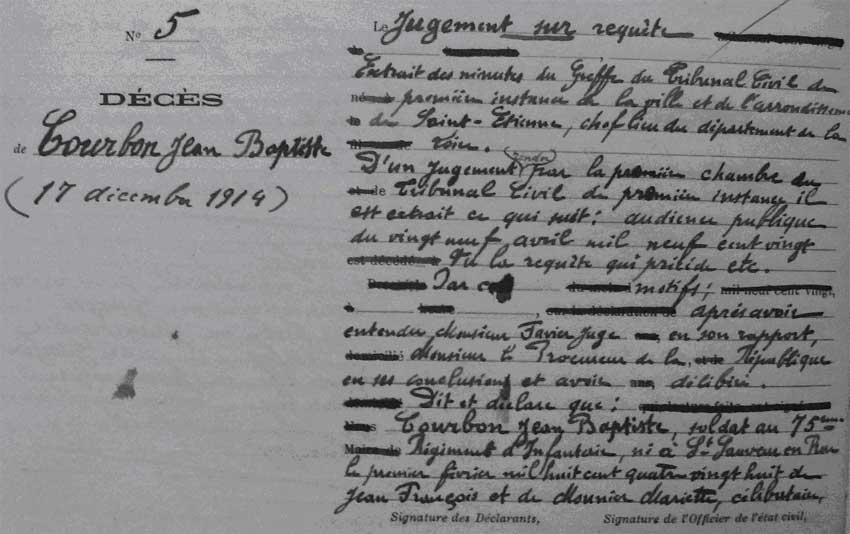 N° 5
DÉCÈS
de Courbon Jean Baptiste
(17 décembre 1914)
Le Jugement sur requête
Extrait des minutes du Greffe du Tribunal Civil de
première instance de la ville et de l'arrondisseme
de Saint-Etienne, chef lieu du département de la
Loire.
D'un jugement rendu par la première chambre du
Tribunal Civil de première instance il
est extrait ce qui suit: audience publique
du vingt neuf avril mil neuf cent vingt
est décédé à Vu la requête qui précède etc.
Par ces motifs; mil neuf cent vingt,
sur la déclaration de après avoir
entendu Monsieur Favier Juge en son rapport,
Monsieur le Procureur de la République
en ses conclusions et avoir délibéré.
Dit et déclare que:
Courbon Jean Baptiste, soldat au 75ème
Maire de Régiment d'Infanterie, né à St Sauveur en Rue
le premier février mil huit cent quatre vingt huit de
Jean François et de Mounier Mariette, célibataire,
Signature des Déclarants, Signature de l'Officier de l'état civil,